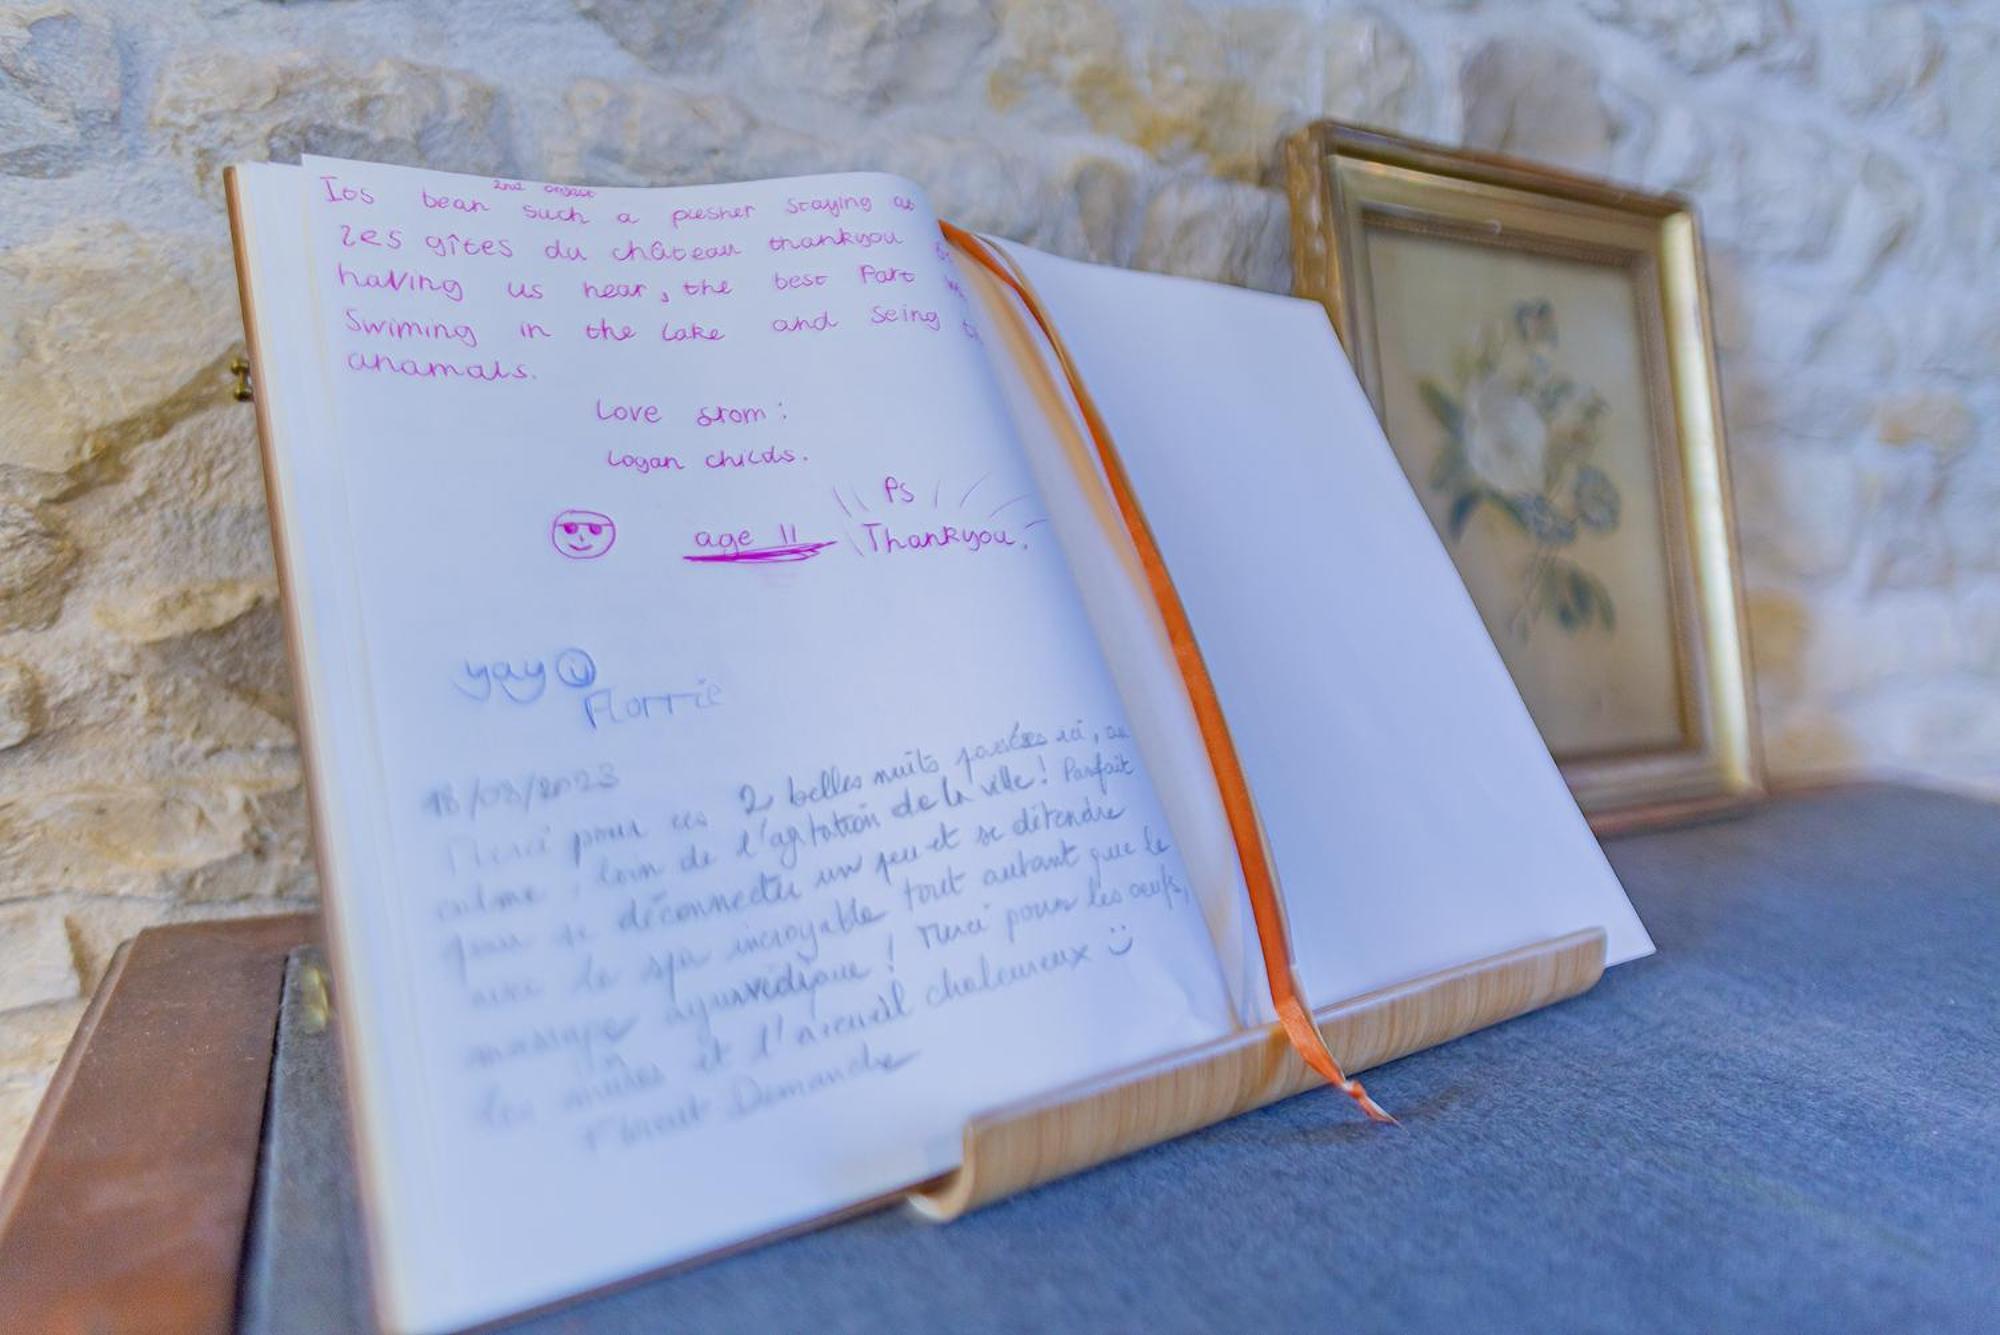 2nd
Its bean such a plesher staying at
Les gîtes du château thankyou
having us hear, the best Part
Swiming in the Lake and seing
anamals.
Love from:
Logan childs.
Ps
age 11
Thankyou.
yay
Florrie
18/03/2023
Merci pour ces 2 belles nuits passées ici, au
calme, loin de l'agitation de la ville! Parfait
pour se déconnecter un peu et se détendre
avec le spa incroyable tout autant que le
massage ayurvédique! Merci pour les oeufs,
les et l'accueil chaleureux :)